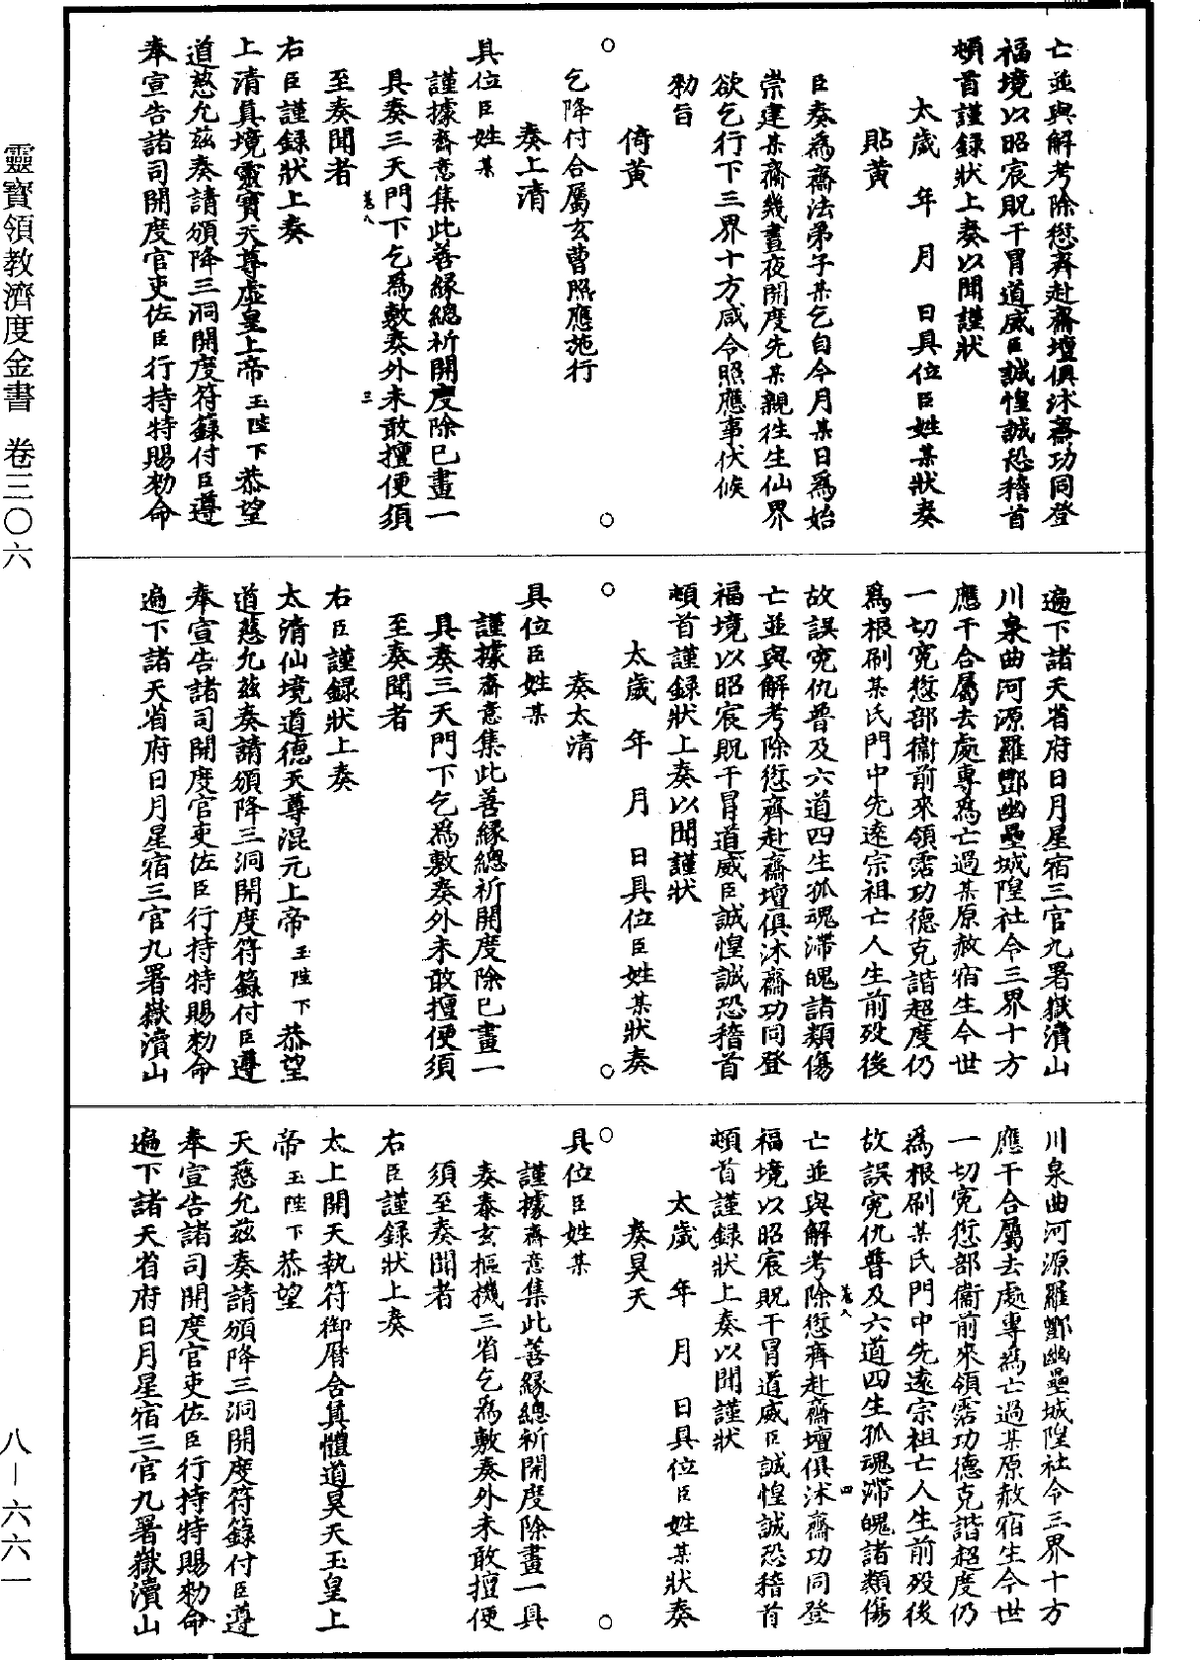 亡並與解考除愆齊赴齋壇俱沐齋功同登
福境以昭宸貺干冒道威臣誠惶誠恐稽首
頓首謹録狀上奏以聞謹狀
太歲　年　月　日具位臣姓某狀奏
貼黄
臣奏爲齋法弟子某乞自今月某日爲始
崇建某齋幾晝夜開度先某親徃生仙界
欲乞行下三界十方咸令照應事伏候
勑旨
倚黄
乞降付合屬玄曹照應施行
○　○
奏上清
具位臣姓某
謹據齋意集此善緣總祈開度除已畫一
具奏三天門下乞爲敷奏外未敢擅便須
卷八　三
至奏聞者
右臣謹録狀上奏
上清真境靈寶天尊虛皇上帝玉陛下恭望
道慈允茲奏請頒降三洞開度符籙付臣遵
奉宣告諸司開度官吏佐臣行持特賜勑命
遍下諸天省府日月星宿三官九署嶽瀆山
川泉曲河源羅酆幽壘城隍社令三界十方
應干合屬去處專爲亡過某原赦宿生今世
一切寃愆部衞前來領霑功德克諧超度仍
爲根刷某氏門中先遠宗祖亡人生前殁後
故誤寃仇普及六道四生孤魂滯魄諸類傷
亡並與解考除愆齊赴齋壇俱沐齋功同登
福境以昭宸貺干冒道威臣誠惶誠恐稽首
頓首謹録狀上奏以聞謹狀
太歲　年　月　日具位臣姓某狀奏
○　○
奏太清
具位臣姓某
謹據齋意集此善緣總祈開度除已畫一
具奏三天門下乞爲敷奏外未敢擅便須
至奏聞者
右臣謹録狀上奏
太清仙境道德天尊混元上帝玉陛下恭望
道慈允茲奏請頒降三洞開度符籙付臣遵
奉宣告諸司開度官吏佐臣行持特賜勑命
遍下諸天省府日月星宿三官九署嶽瀆山
川泉曲河源羅酆幽壘城隍社令三界十方
應干合屬去處專爲亡過某原赦宿生今世
一切寃愆部衞前來領霑功德克諧超度仍
爲根刷某氏門中先遠宗祖亡人生前殁後
故誤寃仇普及六道四生孤魂滯魄諸類傷
卷八　四
亡並與解考除愆齊赴齋壇俱沐齋功同登
福境以昭宸貺干冒道威臣誠惶誠恐稽首
頓首謹録狀上奏以聞謹狀
太歲　年　月　日具位臣姓某狀奏
奏昊天
○　○
具位臣姓某
謹據齋意集此善緣總祈開度除畫一具
奏泰玄樞機三省乞爲敷奏外未敢擅便
須至奏聞者
右臣謹録狀上奏
太上開天執符御曆含真體道昊天玉皇上
帝玉陛下恭望
天慈允茲奏請頒降三洞開度符籙付臣遵
奉宣告諸司開度官吏佐臣行持特賜勑命
遍下諸天省府日月星宿三官九署嶽瀆山
靈寶領教濟度金書　卷三〇六
八—六六一